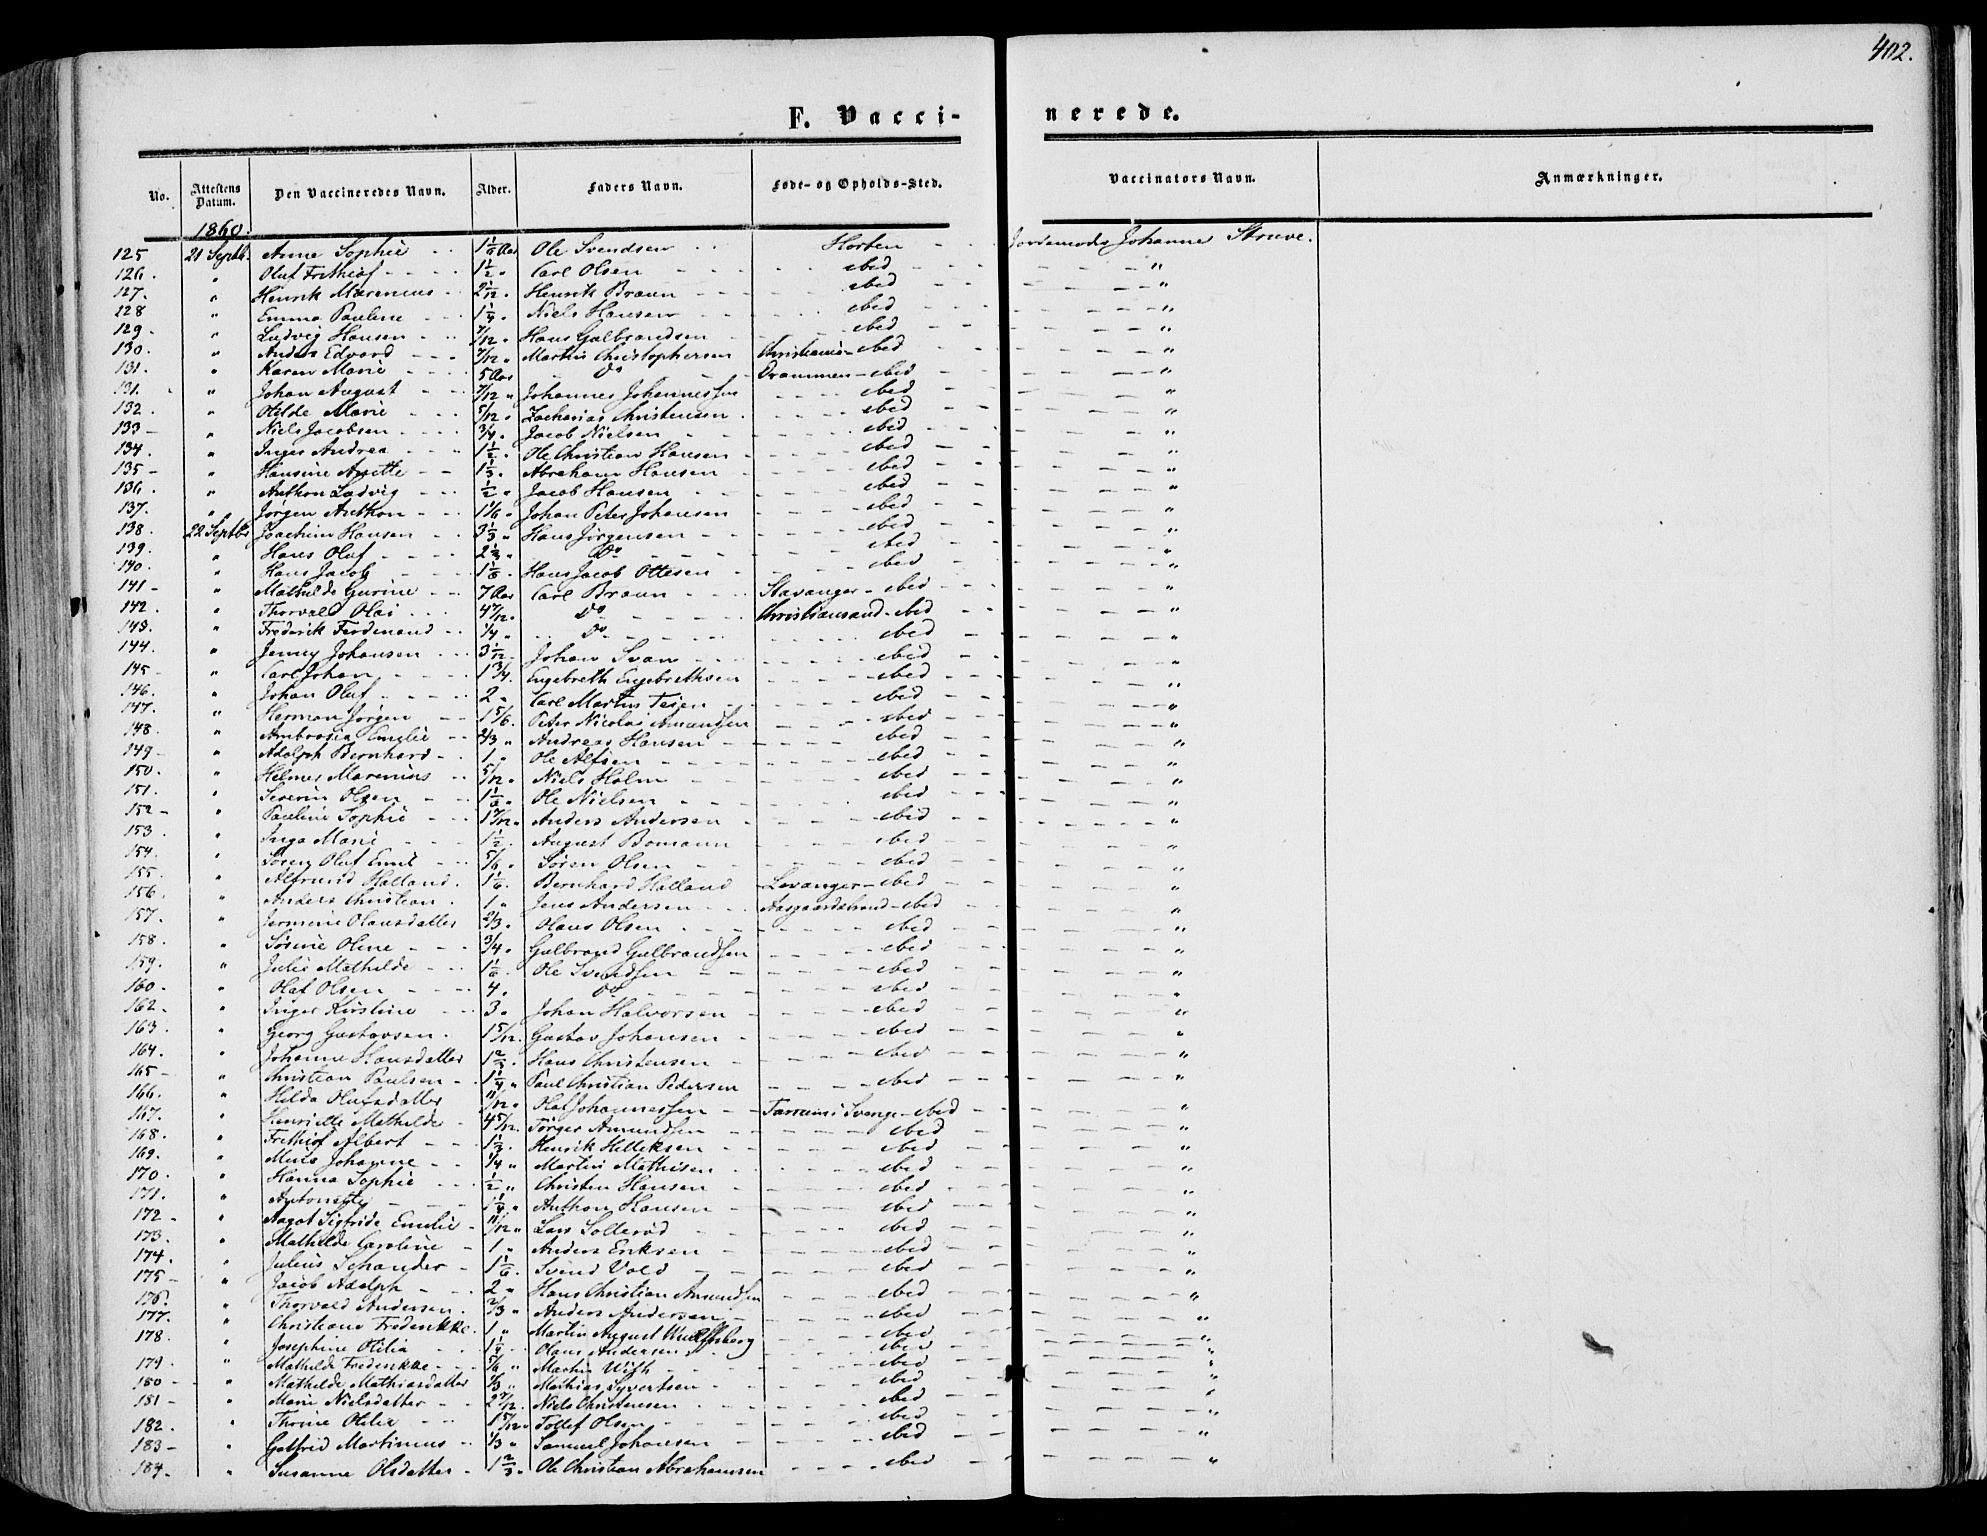 402.
F. Vacci-nerede.
No. Attestens Datum. Den Vaccineredes Navn. Alder. Faders Navn. Føde- og Opholds-Sted. Vaccinators Navn. Anmærkninger.
1860.
125 21 Septb. Anne Sophie 1 1/6 Aar Ole Svendsen Horten Jordemoder Johanne Struve.
126. " Oluf Frithiof 1 1/2 " Carl Olsen ibid "
127. " Henrik Marenius 2 1/12 " Henrik Braun ibid "
128 " Emma Pauline 1 1/4 " Niels Hansen ibid "
129. " Ludvig Hansen 7/12 " Hans Gulbrandsen ibid "
130. " Anders Edvard 7/12 " Martin Christophersen Christiania - ibid "
131. " Karen Marie 5 Aar Do Drammen - ibid "
131. " Johan August 7/12 " Johannes Johannessen ibid "
132. " Hilde Marie 5/12 " Zacharias Christensen ibid "
133 - " Niels Jacobsen 3/4 " Jacob Nielsen ibid "
134. " Inger Andrea 1 1/2 " Ole Christian Hansen ibid "
135 - " Hansine Anette 1 1/3 " Abraham Hansen ibid "
136. " Anthon Ludvig 1/2 " Jacob Hansen ibid "
137. " Jørgen Anthon 1 1/6 " Johan Peter Johansen ibid "
138. 22 Septbr Joachim Hansen 3 1/3 " Hans Jørgensen ibid "
139. " Hans Oluf 2 2/3 " Do ibid "
140. " Hans Jacob 1 1/6 " Hans Jacob Ottesen ibid "
141 - " Mathilde Gurine 7 Aar Carl Braun Stavanger - ibid "
142. " Thorvald Olai 4 7/12 " Do Christiansand - ibid "
143. " Frederik Ferdinand 1/4 " Do ibid "
144. " Jenny Johansen 3 1/12 Johan Svan ibid "
145 - " Carl Johan 1 3/4 " Engebreth Engebrethsen ibid "
146. " Johan Oluf 2 " Carl Martin Teien ibid "
147. " Herman Jørgen 1 5/6 " Peter Nicolai Amundsen ibid "
148. " Ambrosia Emilie 2/3 " Andreas Hansen ibid "
149 - " Adolph Bernhard 1 " Ole Alfsen ibid "
150. " Helmer Marenius 5/12 " Niels Holm ibid "
151. " Severin Olsen 1 1/6 " Ole Nielsen ibid "
152 - " Pauline Sophie 1 7/12 " Anders Andersen ibid "
153. " Inga Marie 1 1/2 " August Bomann ibid "
154. " Søren Oluf Emil 5/6 " Søren Olsen ibid "
155. " Alfrund Holland 1 1/6 " Bernhard Holland Levanger - ibid "
156. " Anders Christian 1 " Jens Andersen Aasgaardstrand - ibid "
157. " Jermine Olausdatter 2/3 " Olaus Olsen ibid "
158. " Sørine Oline 3/4 " Gulbrand Gulbrandsen ibid "
159. " Julie Mathilde 1 1/6 " Ole Svendsen ibid "
160. " Olaf Olsen 4 " Do ibid "
162. " Inger Kirstine 3 " Johan Halvorsen ibid "
163. " Georg Gustavsen 1 5/12 " Gustav Johansen ibid "
164. " Johanne Hansdatter 1 2/3 " Hans Christensen ibid "
165 - " Christian Paulsen 1 1/4 " Paul Christian Pedersen ibid "
166. " Hilda Olufsdatter 11/12 " Olaf Johannessen ibid "
167. " Henriette Mathilde 4 5/12 " Tørger Amundsen ibid "
168. " Frithiof Albert 1 1/2 " Henrik Hilleksen ibid "
169. " Johanne 1/4 " Martin Mathisen ibid "
170. " Hanna Sophie 1/2 " Christen Hansen ibid "
171. " Antonette 1 1/4 " Anthon Hansen ibid "
172 - " Aagot Sigfrida Emilie 11/12 " Lars Sollerød ibid "
173. " Mathilde Caroline 1 " Anders Eriksen ibid "
174. " Julius Schander 1 1/6 " Svend Vold ibid "
175 - " Jacob Adolph 2 " Hans Christian Amundsen ibid "
176. " Thorvald Andersen 2/3 " Anders Andersen ibid "
177. " Christiane Frederikke 1 " Martin August Wulfsberg ibid "
178. " Josephine Otilia 1 1/4 Olaus Andersen ibid "
179. " Mathilde Frederikke 5/6 " Martin With ibid "
180 - " Mathilde Mathiasdatter 1/3 " Mathias Syvertsen ibid "
181 - " Marie Nielsdatter 2 7/12 Niels Christensen ibid "
182. " Thrine Otilia 1 5/12 " Tollef Olsen ibid "
183 - " Gotfrid Martinius 1/3 " Samuel Johansen ibid "
184. " Susanne Olsdatter 1 2/3 " Ole Christian Abrahamsen ibid "